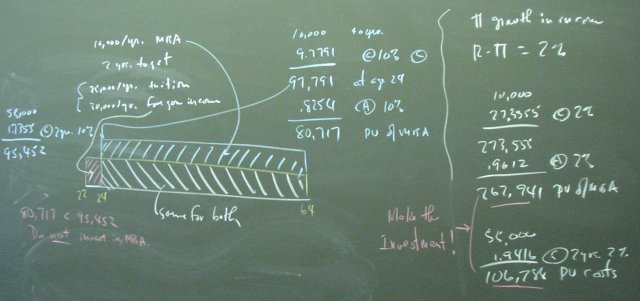 10,000/yr. MBA
2 yrs. to get
35,000/yr. tuition
20,000/yr. foregone income
55,000
1.7355 C 2yrs. 10%
95,452
22 24
64
same for both
80,717 < 95,452
Do not invest in MBA.
10,000 to you
9.7791 @10% C
97,791 at age 24
.8254 A 10%
80,717 PV of MBA
π growth in income
R-π = 2%
10,000
27.3555 C 2%
273,555
.9612 A 2%
262,941 PV of MBA
Make the
Investment!
55,000
1.9416 C 2yrs. 2%
106,788 PV costs